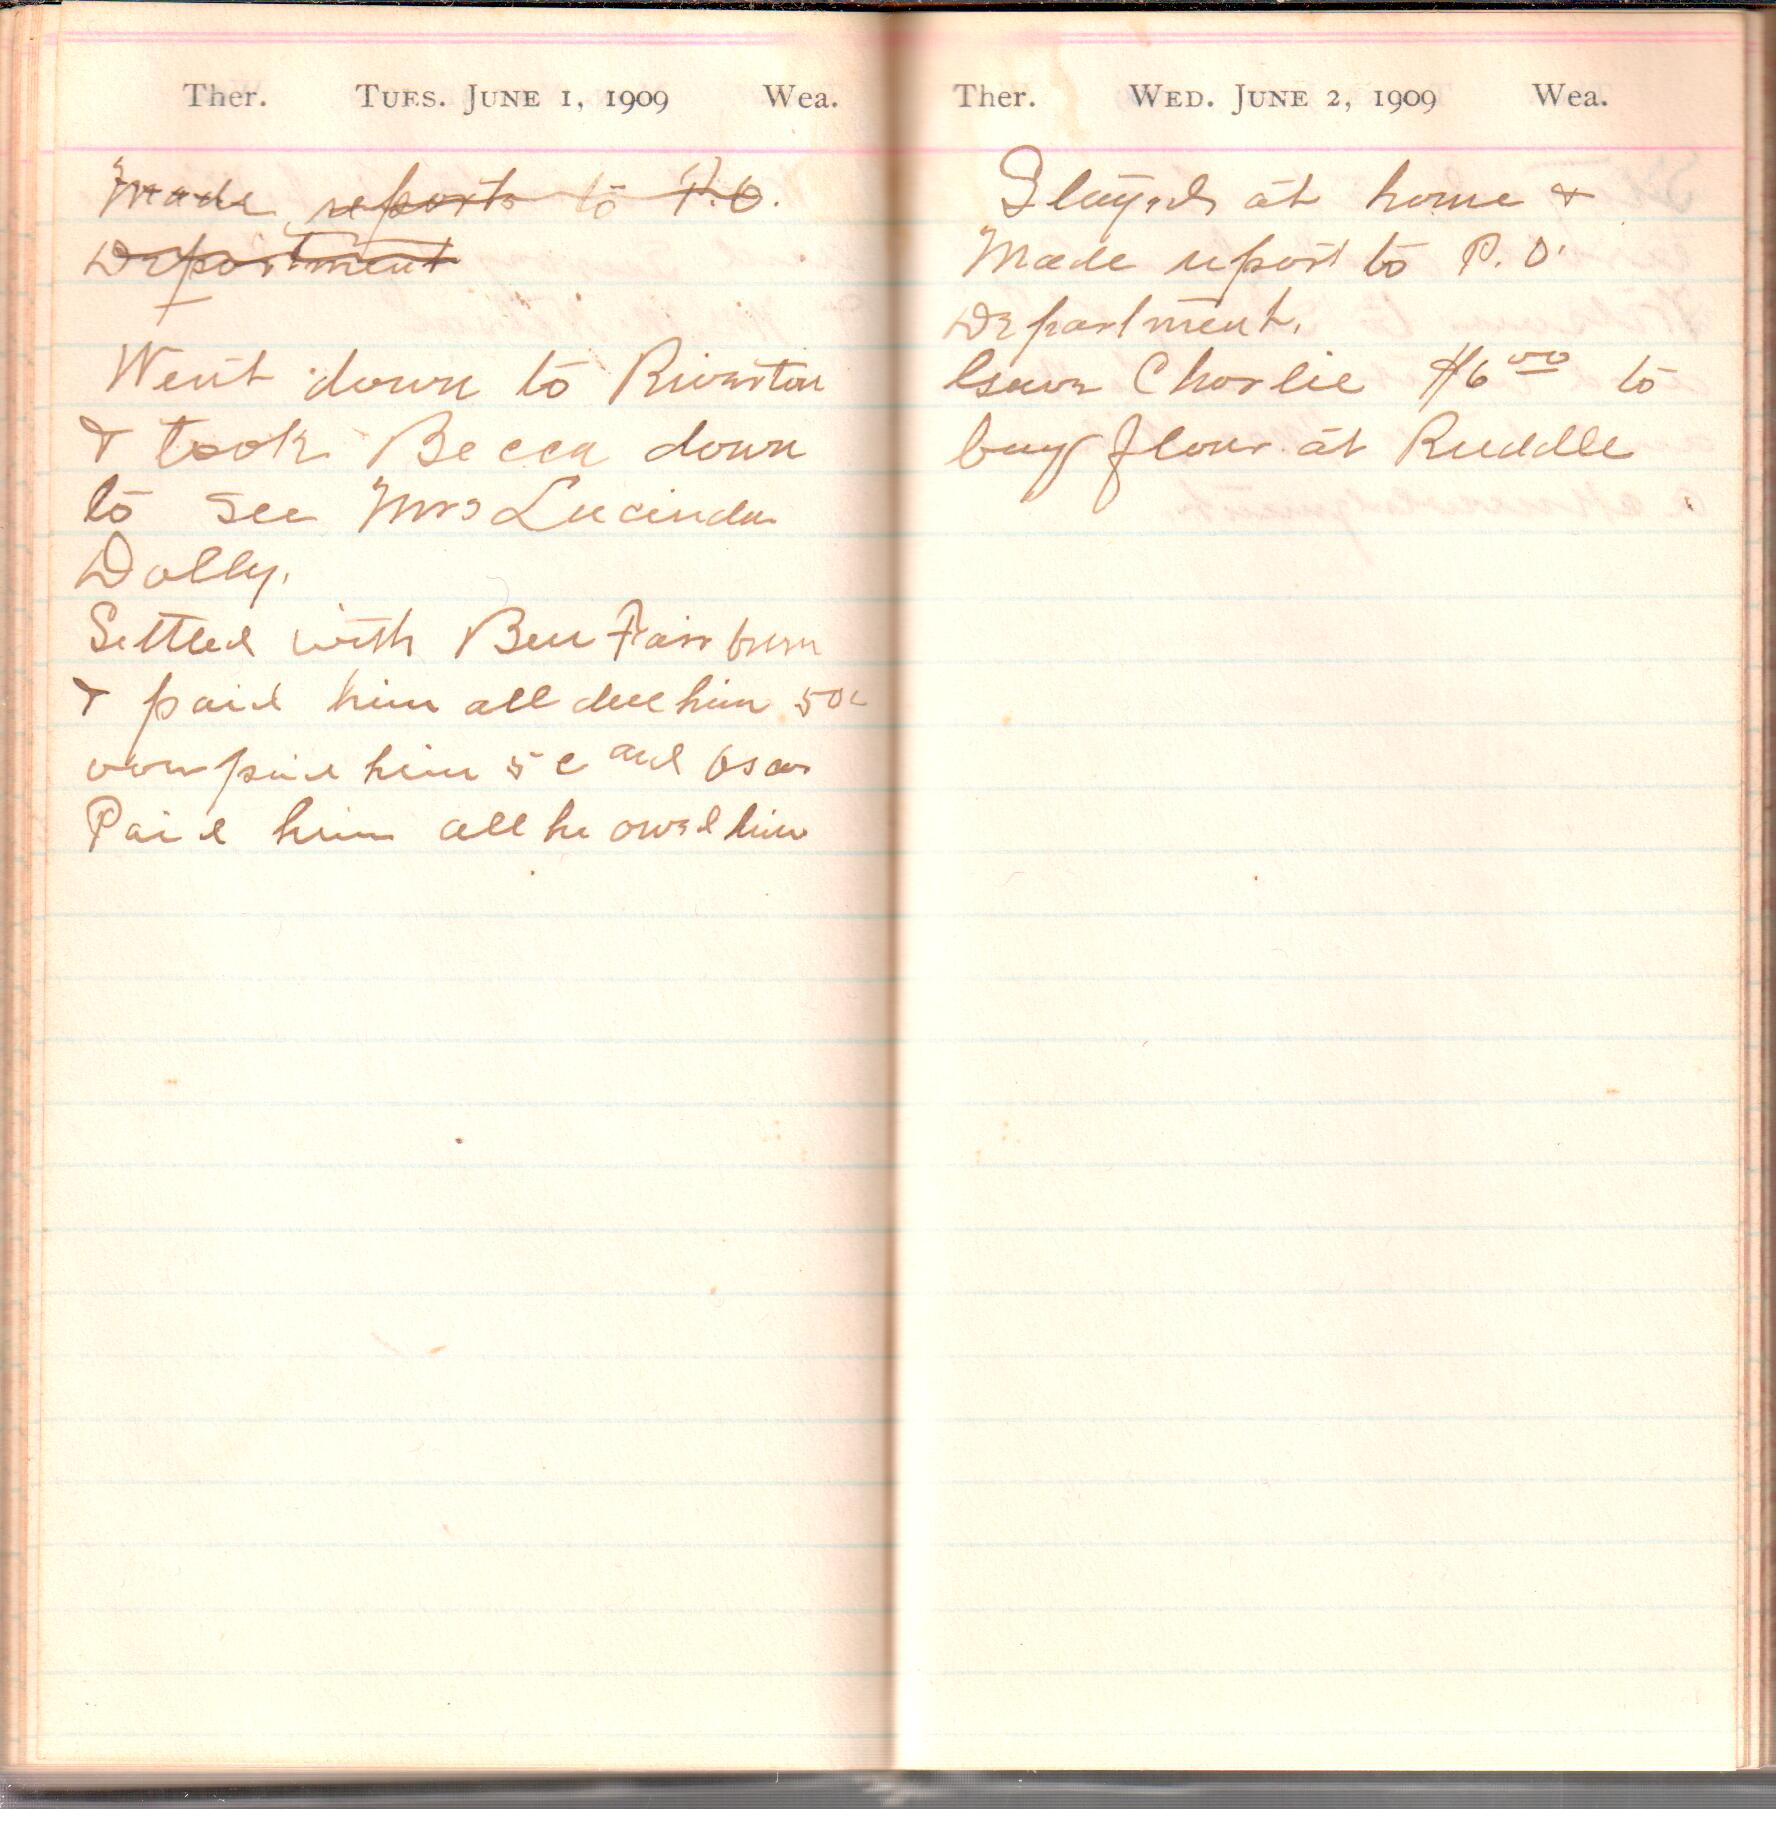 Ther. TUES. JUNE 1, 1909 Wea.
Made reports to P.O.
Department
Went down to Riverton
& took Becca down
to see Mrs Lucinda
Dolly.
Settled with Ben Fairburn
& paid him all due him 50c
over paid him 5c and
Paid him all he owed him
Ther. WED. JUNE 2, 1909 Wea.
Stayed at home &
Made report to P. O.
Department.
Gave Charlie $6.00 to
buy flour at Ruddle